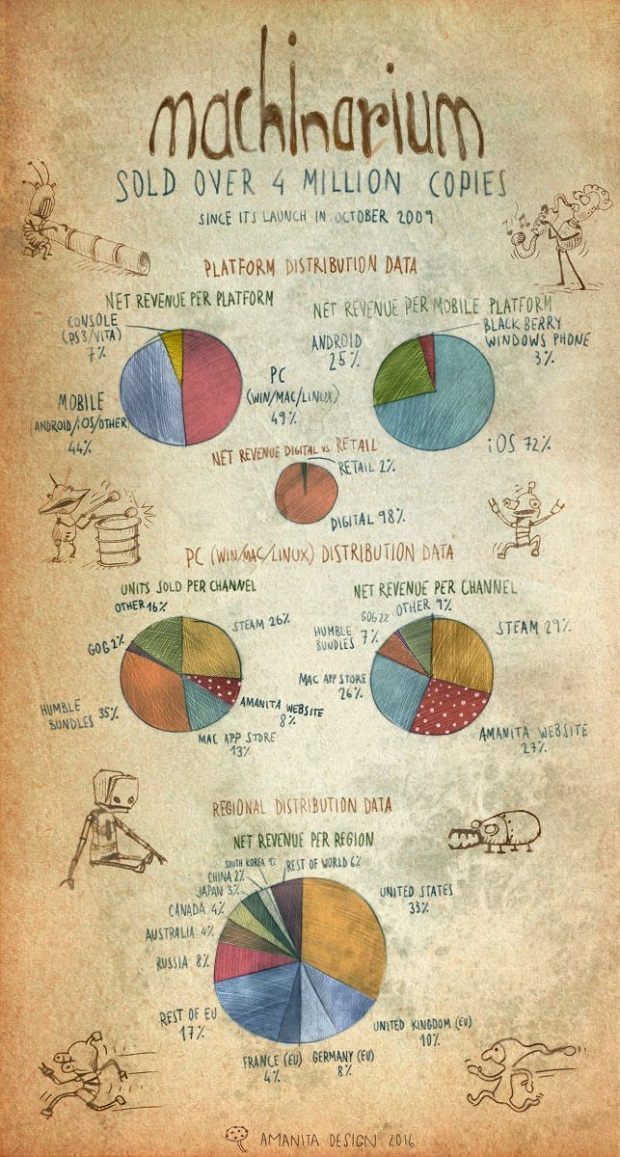 machinarium
SOLD OVER 4 MILLION COPIES
SINCE ITS LAUNCH IN OCTOBER 2009
PLATFORM DISTRIBUTION DATA
NET REVENUE PER PLATFORM
CONSOLE
(PS3/VITA)
7%
MOBILE
ANDROID/iOS/OTHER)
44%
PC
(WIN/MAC/LINUX)
49%
NET REVENUE PER MOBILE PLATFORM
ANDROID
25%
BLACKBERRY
WINDOWS PHONE
3%
iOS 72%
NET REVENUE DIGITAL vs. RETAIL
RETAIL 2%
DIGITAL 98%
PC (WIN/MAC/LINUX) DISTRIBUTION DATA
UNITS SOLD PER CHANNEL
OTHER 16%
STEAM 26%
GOG 2%
HUMBLE
BUNDLES 35%
AMANITA WEBSITE
8%
MAC APP STORE
13%
NET REVENUE PER CHANNEL
OTHER 9%
GOG 2%
HUMBLE
BUNDLES 7%
STEAM 29%
MAC APP STORE
26%
AMANITA WEBSITE
27%
REGIONAL DISTRIBUTION DATA
NET REVENUE PER REGION
SOUTH KOREA 1%
REST OF WORLD 6%
CHINA 2%
JAPAN 3%
CANADA 4%
AUSTRALIA 4%
RUSSIA 8%
REST OF EU
17%
UNITED STATES
33%
UNITED KINGDOM (EU)
10%
FRANCE (EU)
4%
GERMANY (EU)
8%
AMANITA DESIGN 2016